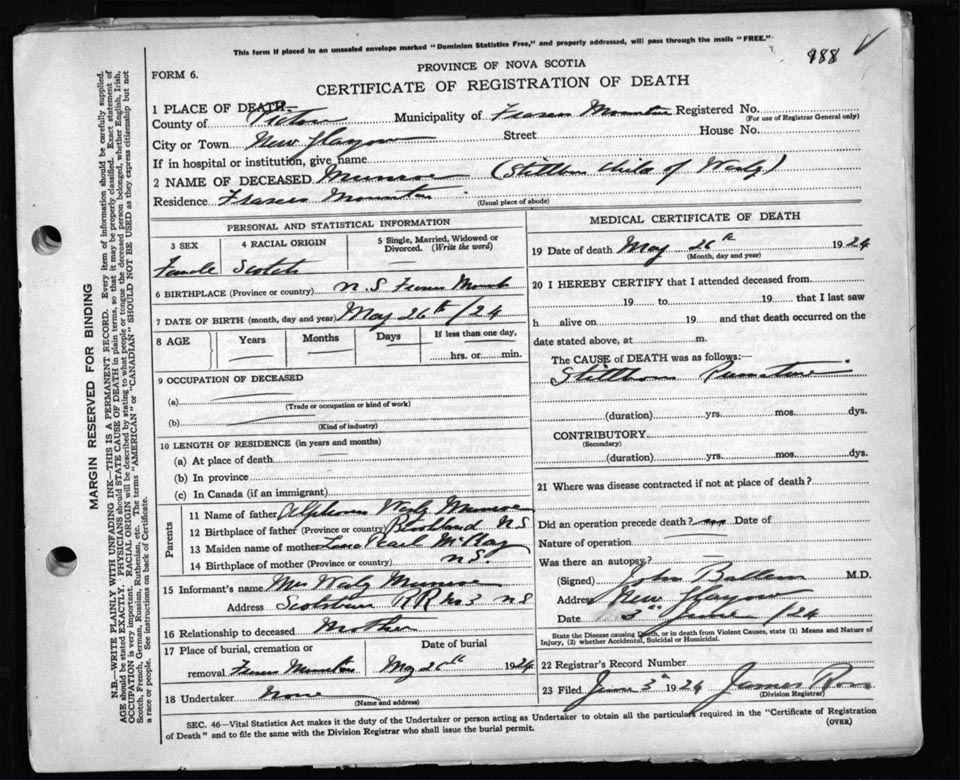 This form if placed in an unsealed envelope marked "Dominion Statistics Free," and properly addressed, will pass through the mails "FREE."
988
PROVINCE OF NOVA SCOTIA
FORM 6.
CERTIFICATE OF REGISTRATION OF DEATH
1 PLACE OF DEATH—
County of Pictou Municipality of Frasers Mountain Registered No.
(For use of Registrar General only)
City or Town New Glasgow Street House No.
If in hospital or institution, give name
2 NAME OF DECEASED Munroe (Stillborn child of Waly)
Residence Frasers Mountain
(Usual place of abode)
PERSONAL AND STATISTICAL INFORMATION
3 SEX 4 RACIAL ORIGIN 5 Single, Married, Widowed or Divorced. (Write the word)
Female Scotch
6 BIRTHPLACE (Province or country) N.S Frasers Mount
7 DATE OF BIRTH (month, day and year) May 26th /24
8 AGE Years Months Days If less than one day,
hrs. or min.
9 OCCUPATION OF DECEASED
(a)
(Trade or occupation or kind of work)
(b)
(Kind of industry)
10 LENGTH OF RESIDENCE (in years and months)
(a) At place of death
(b) In province
(c) In Canada (if an immigrant)
Parents
11 Name of father Munroe
12 Birthplace of father (Province or country) N S
13 Maiden name of mother Pearl McKay
14 Birthplace of mother (Province or country) N S.
15 Informant's name Mrs Waly Munroe
Address Scotsburn RR No 3 N S
16 Relationship to deceased Mother
17 Place of burial, cremation or Date of burial
removal Frasers Mountain May 26th 1924
18 Undertaker None
(Name and address)
MEDICAL CERTIFICATE OF DEATH
19 Date of death May 26th 1924
(Month, day and year)
20 I HEREBY CERTIFY that I attended deceased from
19 to 19 that I last saw
h alive on 19 and that death occurred on the
date stated above, at m.
The CAUSE of DEATH was as follows:—
Stillborn Premature
(duration) yrs. mos. dys.
CONTRIBUTORY
(Secondary)
(duration) yrs. mos. dys.
21 Where was disease contracted if not at place of death?
Did an operation precede death? no Date of
Nature of operation
Was there an autopsy?
(Signed) John M.D.
Address New Glasgow
Date 3rd June /24
State the Disease causing Death, or in death from Violent Causes, state (1) Means and Nature of
Injury, (2) whether Accidental, Suicidal or Homicidal.
22 Registrar's Record Number
23 Filed June 3rd 1924 James Ross
(Division Registrar)
SEC. 46—Vital Statistics Act makes it the duty of the Undertaker or person acting as Undertaker to obtain all the particulars required in the "Certificate of Registration
of Death" and to file the same with the Division Registrar who shall issue the burial permit.
(OVER)
MARGIN RESERVED FOR BINDING
N.B.—WRITE PLAINLY WITH UNFADING INK—THIS IS A PERMANENT RECORD. Every item of information should be carefully supplied.
AGE should be stated EXACTLY. PHYSICIANS should STATE CAUSE OF DEATH in plain terms, so that it may be properly classified. Exact statement of
OCCUPATION is very important. RACIAL ORIGIN will be described by stating to what people or tongue the deceased person belonged, whether English, Irish,
Scotch, French, German, Russian, Ruthenian, etc. The terms "AMERICAN" or "CANADIAN" SHOULD NOT BE USED as they express citizenship but not
a race or people. See instructions on back of Certificate.